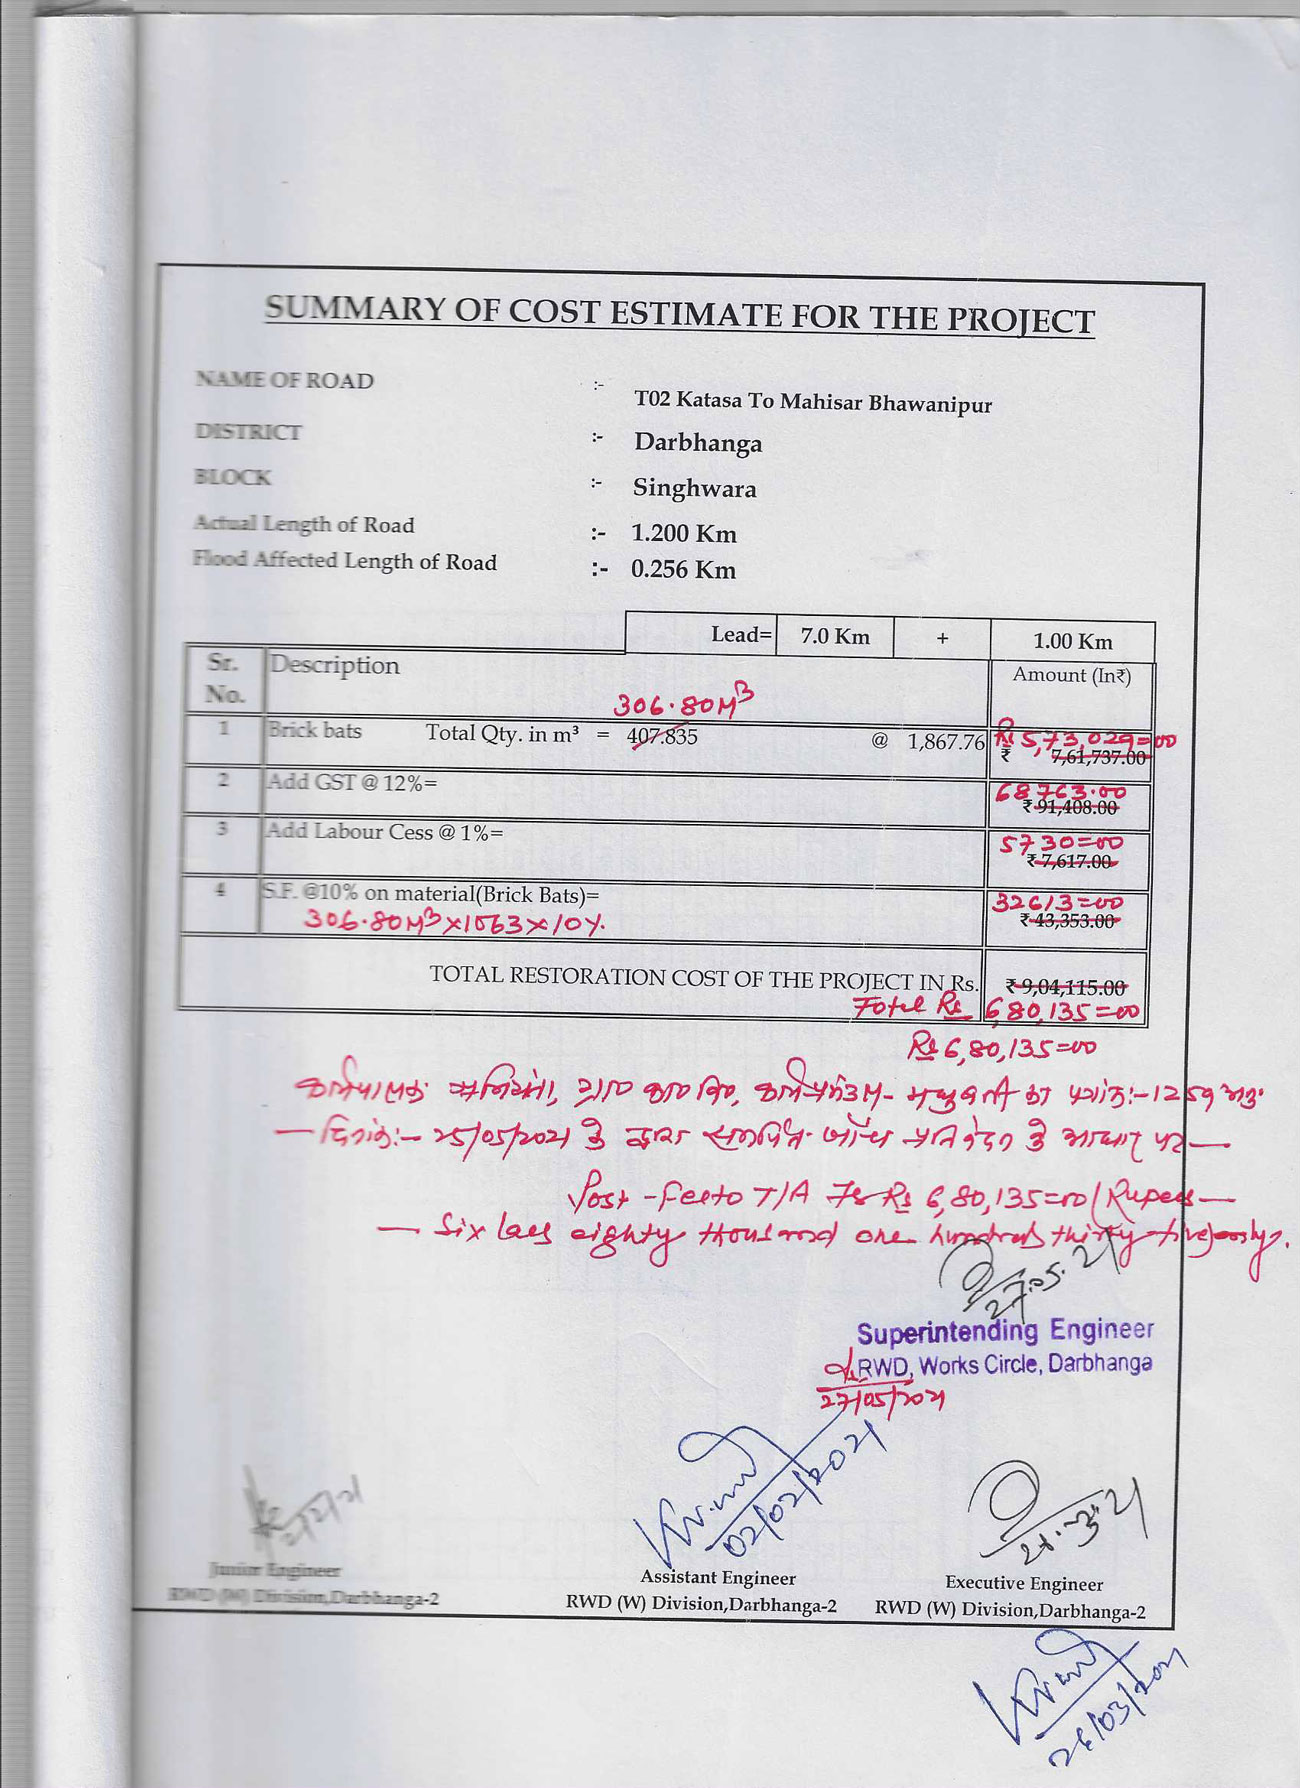 SUMMARY OF COST ESTIMATE FOR THE PROJECT
NAME OF ROAD :- T02 Katasa To Mahisar Bhawanipur
DISTRICT :- Darbhanga
BLOCK :- Singhwara
Actual Length of Road :- 1.200 Km
Flood Affected Length of Road :- 0.256 Km
Lead= 7.0 Km + 1.00 Km
Sr. No. Description Amount (In₹)
306.80M³
1 Brick bats Total Qty. in m³ = 407.835 @ 1,867.76 Rs 5,73,029=00
₹ 7,61,737.00
2 Add GST @ 12%= 68763.00
₹ 91,408.00
3 Add Labour Cess @ 1%= 5730=00
₹ 7,617.00
4 S.F. @10% on material(Brick Bats)= 32613=00
306.80M³×1063×10%. ₹ 43,353.00
TOTAL RESTORATION COST OF THE PROJECT IN Rs. ₹ 9,04,115.00
Total Rs 6,80,135=00
Rs 6,80,135=00
कार्यपालक अभियंता, का पत्रांक:-1259 अनु०
— दिनांक:- 25/05/2021 के द्वारा समर्पित जाँच प्रतिवेदन के आधार पर —
Post-facto T/A for Rs 6,80,135=00 (Rupees —
— Six lacs eighty thousand one hundred thirty five) only.
27.05.21
Superintending Engineer
RWD, Works Circle, Darbhanga
27/05/2021
02/02/2021
Junior Engineer
RWD (W) Division,Darbhanga-2
Assistant Engineer
RWD (W) Division,Darbhanga-2
Executive Engineer
RWD (W) Division,Darbhanga-2
26/03/2021